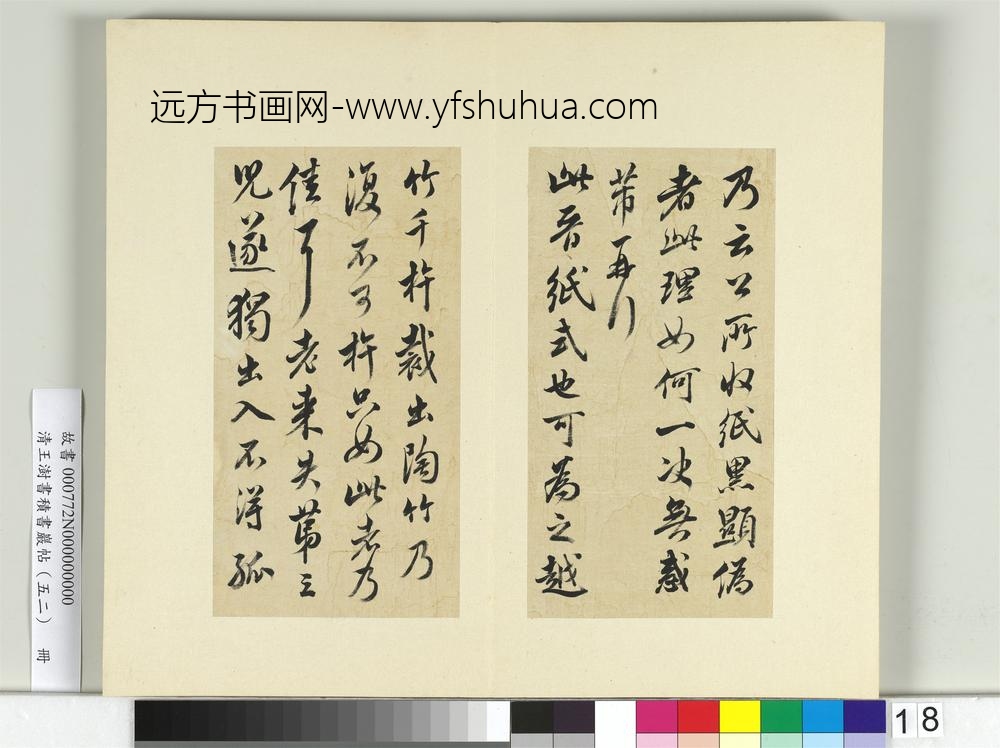 远方书画网-www.yfshuhua.com
乃云公所收紙黑顯偽
者此理如何一决無惑
芾再行
此晉紙式也可為之越
竹千杵裁出陶竹乃
復不可杵只如此老乃
佳耳老来失第三
兒遂獨出入不得孤
故書 000772N000000000
清王澍書積書巖帖(五二) 冊
18